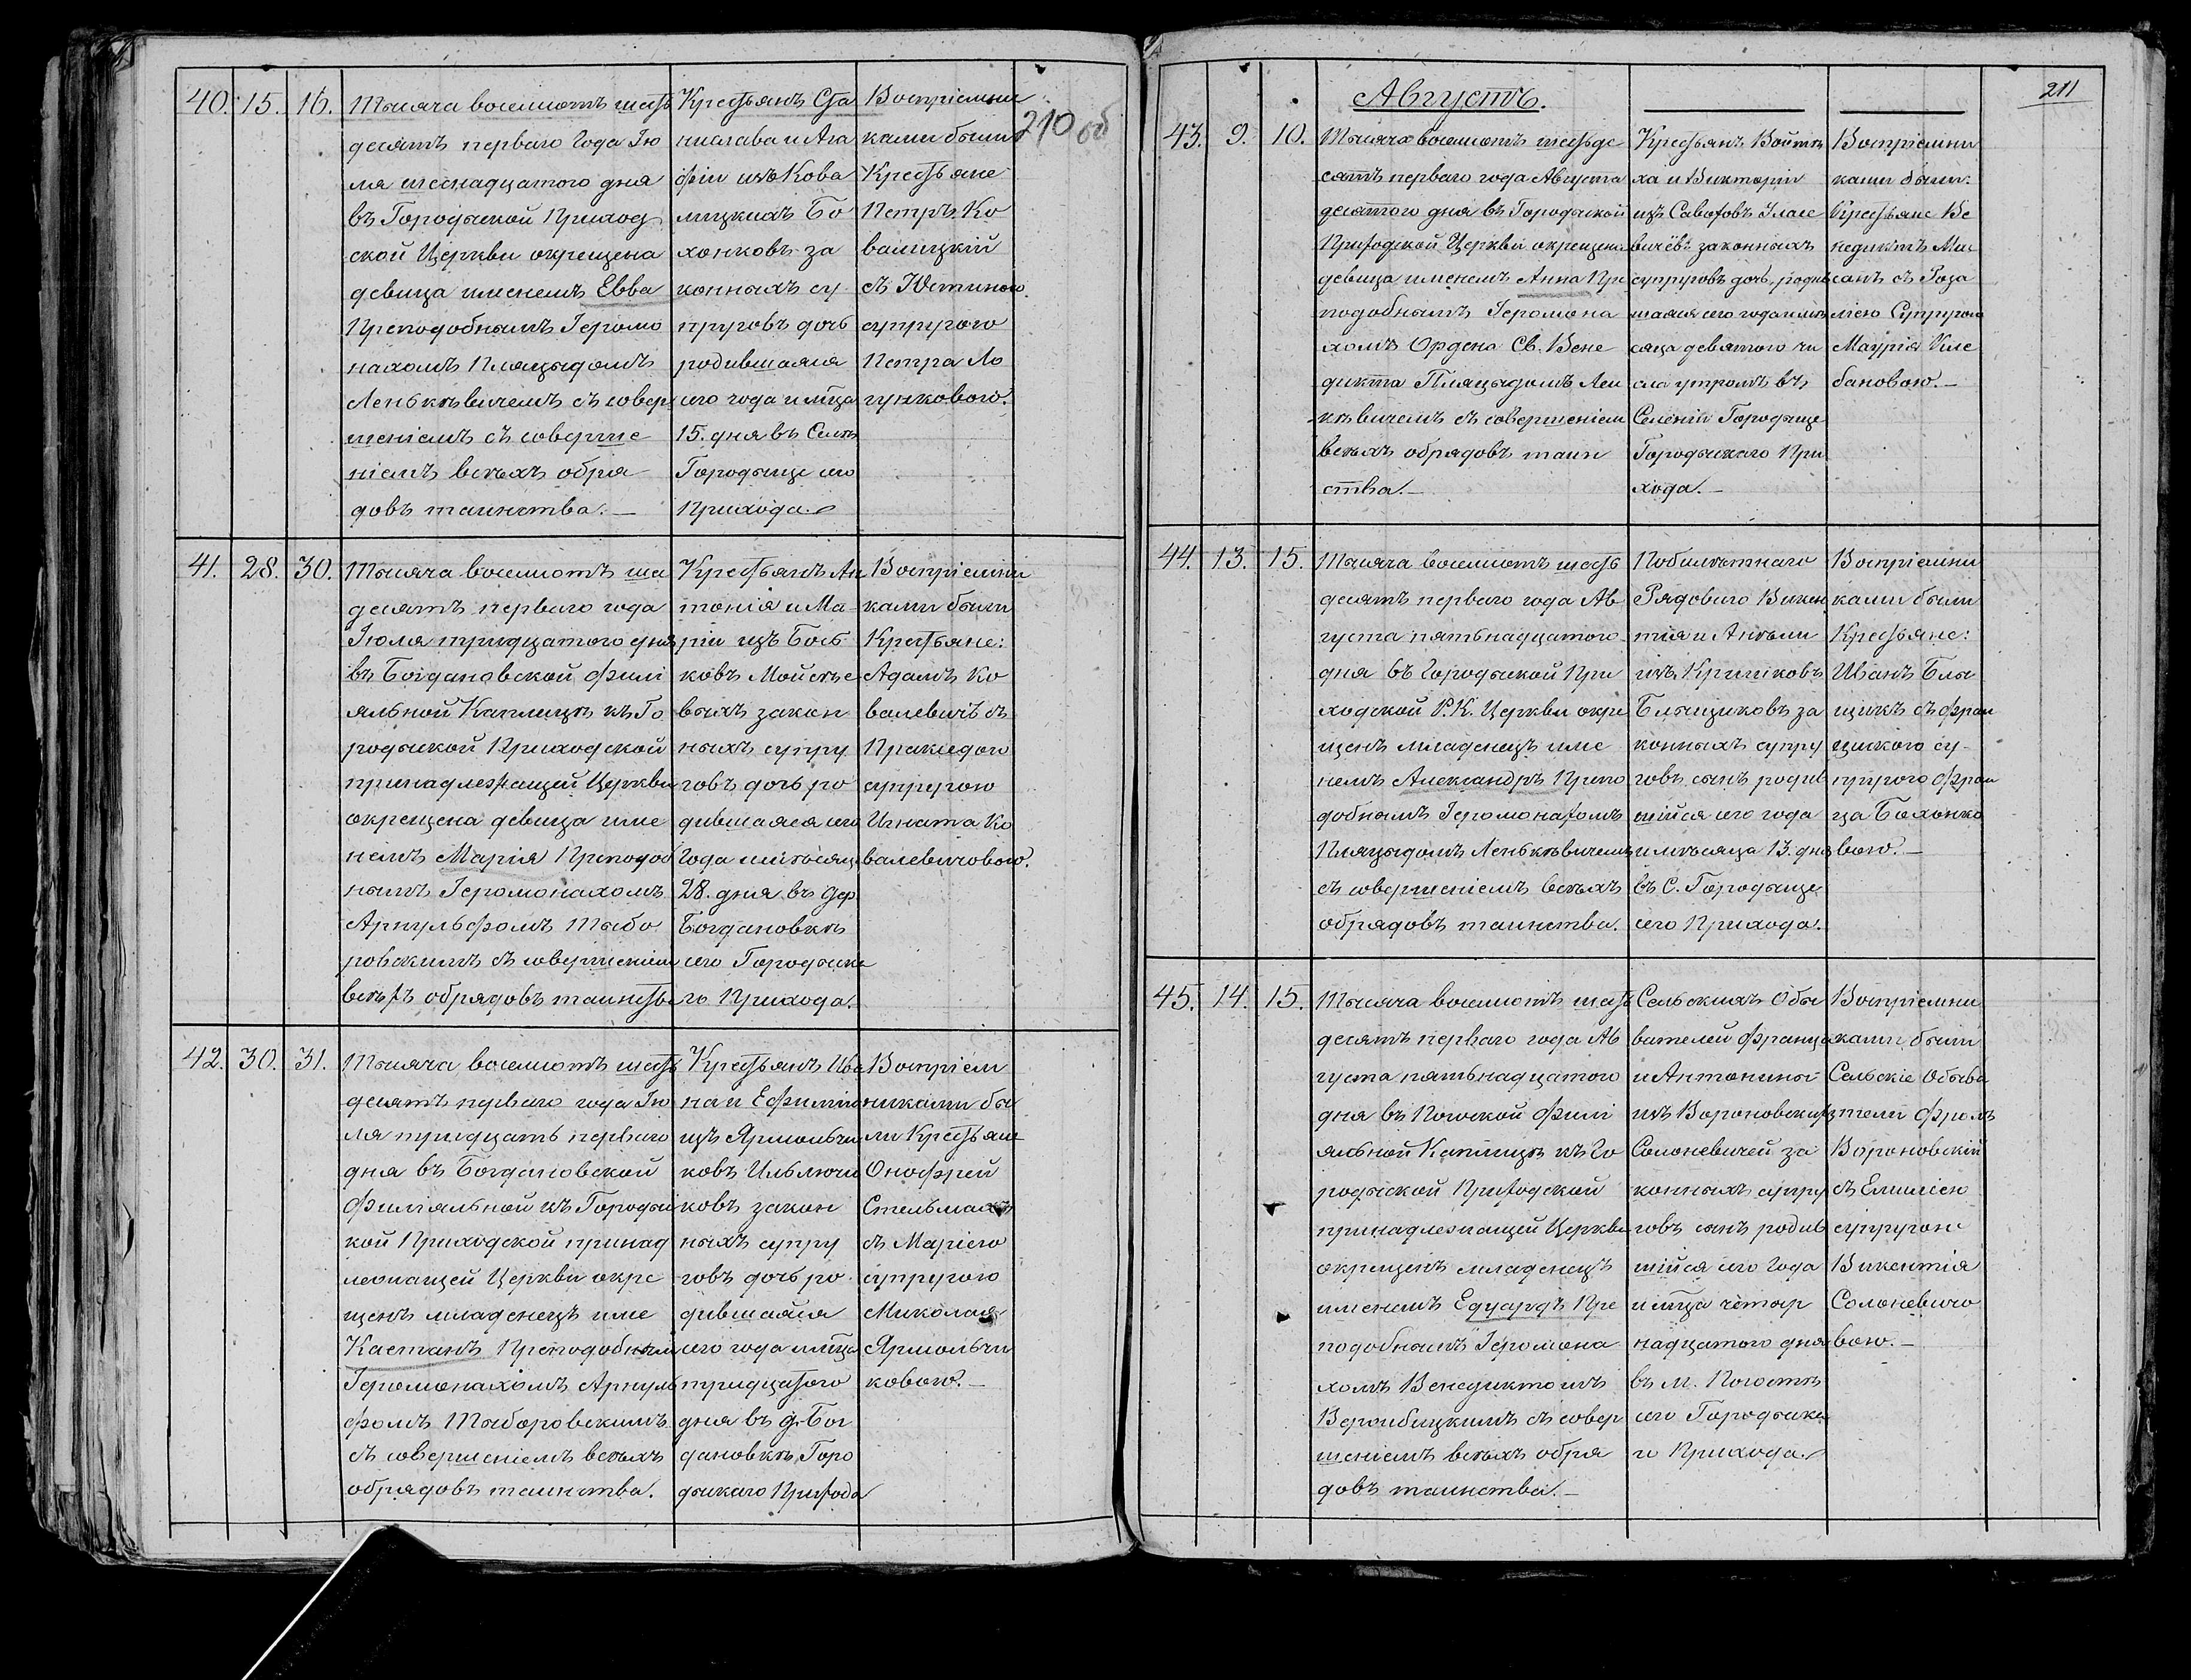 210 об
40. 15. 16.
Тысяча восемьсотъ шесть
десятъ перваго Года Iю
ля шеснадцатого дня
въ Городыской Приход
ской Церкви окрещена
девица именемъ Евва
Преподобнымъ Iеромо
нахомъ Пляцыдомъ
Леньквичемъ съ совер
шенiемъ съ соверше
нiемъ всехъ обря
довъ таинства.—
Крестьянъ Ста
нислава и Ага
фiи изъ Кова
лицкихъ Бо
хонковъ за
конныхъ су
пруговъ дочь
родившаяся
сего года и мѣца
15. дня въ Селѣ
Городыще сего
Прихода.
Воспрiемни
ками были
Крестьяне
Петръ Ко
валицкiй
съ Юстиною
супругою
Петра Ло
гунковою.
41. 28. 30.
Тысяча восемьсотъ ше
десятъ перваго года
Iюля тридцатого дня
въ Богдановской Филi
яльной Каплицѣ къ Го
родыской Приходской
принадлежащей Церкви
окрещена девица име
немъ Марiя Преподоб
нымъ Iеромонахомъ
Арнульфомъ Тыбо
ровскимъ съ совершенiем
всехъ обрядовъ таинства
Крестьянъ Ан
тонiя и Ма
рiи изъ Бось
ковъ Мойсѣе
выхъ закон
ныхъ супру
говъ дочь ро
дившаяся сего
Года и мѣсяца
28. дня въ дер.
Богдановкѣ
сего Городыска
го Прихода.
Воспрiемни
ками были
Крестьяне:
Адамъ Ко
валевичъ съ
Пракседою
супругою
Игната Ко
валевичовою.
42. 30. 31.
Тысяча восемьсотъ шесть
десятъ перваго года Iю
ля тридцать перваго
дня въ Богдановской
Филiяльной къ Городыс
кой Приходской принад
лежащей Церкви окре
щенъ младенецъ име
Каетанъ Преподобным
Iеромонахомъ Арнуль
фомъ Тыборовскимъ
съ совершенiемъ всехъ
обрядовъ таинства.
Крестьянъ Ива
на и Ефимiи
изъ Ярмольчи
ковъ Ильючи
ковъ закон
ныхъ супру
говъ дочь ро
дившаяся
сего года и мѣца
тридцатого
дня въ д. Бог
дановкѣ, Горо
дыскаго Прихода
Воспрiем
никами бы
ли Крестьяне
Онофрей
Стельмахъ
съ Марiею
супругою
Миколая
Ярмольчи
ковою.—
211
Августъ.
43. 9. 10.
Тысяча восемьсотъ шестьде
сятъ перваго года Августа
десятого дня въ Городыской
Приходской Церкви окрещена
девица именемъ Анна Пре
подобнымъ Iеромона
хомъ Ордена Св. Бене
дикта Пляцыдомъ Лен
квичемъ съ совершенiем
всехъ обрядовъ таин
ства.—
Крестьянъ Войтѣ
ха и Викторiи
изъ Савоховъ Уласе
вичёвъ законныхъ
супруговъ дочь, родив
шаяся сего года и мѣ
сяца девятого чи
сла утромъ въ
Селенiи Городыще
Городыскаго При
хода.—
Воспрiемни
ками были:
Крестьяне Бе
недиктъ Ма
санъ съ Роза
лiею Супругою
Маурiя Кле
бановою.—
44. 13. 15.
Тысяча восемьсотъ шесть
десятъ перваго года Ав
густа пятьнадцатого
дня въ Городыской При
ходской Р.К. Церкви окре
щенъ младенецъ име
немъ Александръ Препо
добнымъ Iеромонахомъ
Пляцыдомъ Леньквичемъ
съ совершенiемъ всехъ
обрядовъ таинства.
Побилѣтнаго
Рядового Викен
тiя и Анѣли
изъ Кришковъ
Блыщиковъ за
конныхъ супру
говъ сынъ родив
шiйся сего года
и мѣсяца 13. дня
въ С. Городыще
сего Прихода.
Воспрiемни
ками были
Крестьяне:
Иванъ Блы
щикъ съ Фран
цишкою су
пругою Фран
ца Бохонко
вою.—
45. 14. 15.
Тысяча восемьсотъ шесть
десятъ перваго года Ав
густа пятьнадцатого
дня въ Погоской Филi
яльной Каплицѣ къ Го
родыской Приходской
принадлежащей Церкви
окрещенъ младенецъ
именемъ Едуардъ Пре
подобнымъ Iеромона
хомъ Бенедиктомъ
Верыбицкимъ съ совер
шенiемъ всехъ обря
довъ таинства.—
Сельскихъ Обы
вателей Франца
и Антонины
изъ Вороновскихъ
Солоневичей за
конныхъ супру
говъ сынъ родив
шiйся сего Года
и мѣца четыр
надцатого дня
въ м. Погостѣ
сего Городыска
го Прихода.
Воспрiемни
ками были
Сельскiе Обыва
тели Фромъ
Вороновскiй
съ Емилiею
супругою
Викентiя
Солоневичо
вою.—